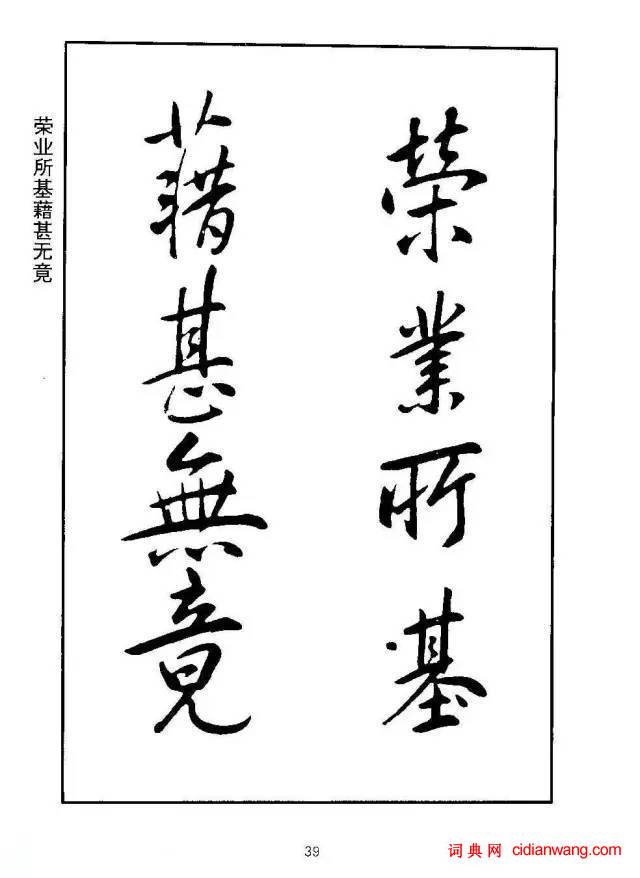 榮業所基
藉甚無竟
荣业所基藉甚无竟
39
词典网 cidianwang.com